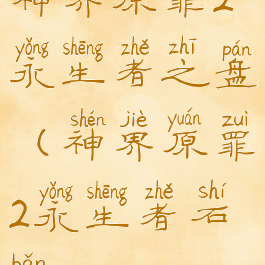 神界原罪2
yǒng shēng zhě zhī pán
永生者之盘
shén jiè yuán zuì
(神界原罪
yǒng shēng zhě shí
2永生者石
bǎn